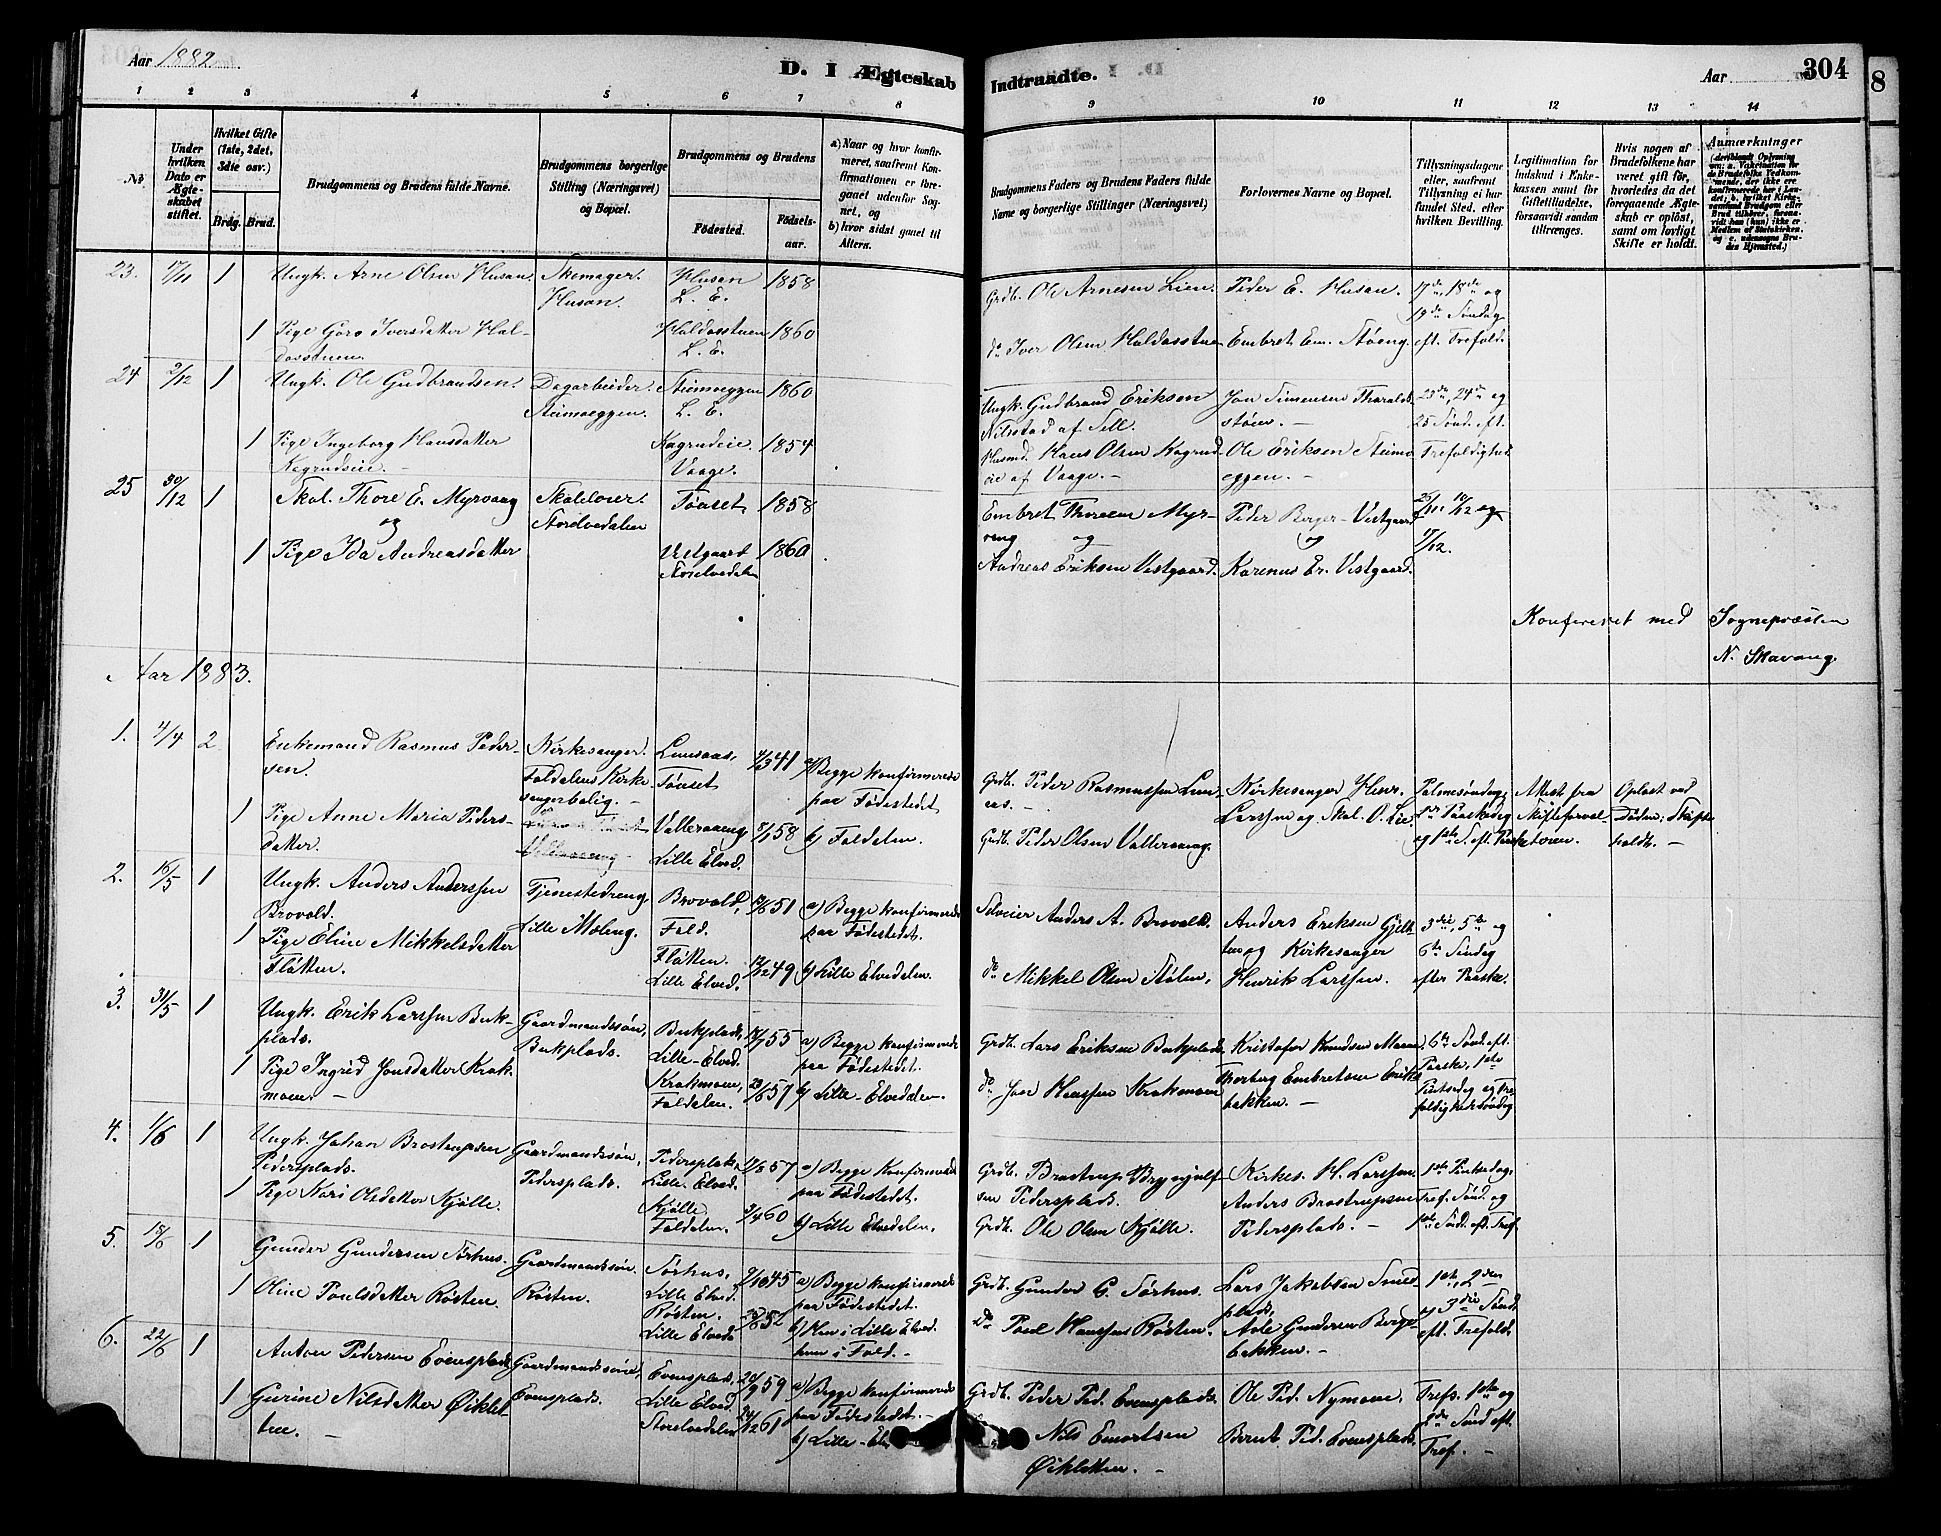 Aar 1882
D. I Ægteskab
Indtraadte.
Aar
304
8
1 2 3 4 5 6 7 8 9 10 11 12 13 14
No.
Under hvilken Dato er Ægteskabet stiftet.
Hvilket Gifte (1ste, 2det, 3die osv.)
Brdg. Brud.
Brudgommens og Brudens fulde Navne.
Brudgommens borgerlige Stilling (Næringsvei) og Bopæl.
Brudgommens og Brudens
Fødested.
Fødselsaar.
a) Naar og hvor konfirmeret, saafremt Konfirmationen er foregaaet udenfor Sognet, og
b) hvor sidst gaaet til Alters.
Brudgommens Faders og Brudens Faders fulde Navne og borgerlige Stillinger (Næringsvei)
Forlovernes Navne og Bopæl.
Tillysningsdagene eller, saafremt Tillysning ei har fundet Sted, efter hvilken Bevilling.
Legitimation for Indskud i Enkekassen samt for Giftetilladelse, forsaavidt saadan tiltrænges.
Hvis nogen af Brudefolkene har været gift før, hvorledes da det foregaaende Ægteskab er opløst, samt om lovligt Skifte er holdt.
Anmærkninger
23. 17/11 1
Ungk. Arne Olsen Husan.
Skomager.
Husan.
Husan
L. E.
1858
Grdb. Ole Arnesen Lien.
Peder E. Husan.
17de, 18de og
19de Søndag
eft. Trefold.
1 Pige Goro Iversdatter Haldosstuen.
Haldosstuen
L. E.
1860
do Iver Olsen Haldosstuen
Embret Em. Støeng.
24 2/12 1
Ungk. Ole Gudbrandsen.
Dagarbeider.
Steimoeggen.
Steimoeggen
L. E.
1860
Ungk. Gudbrand Eriksen
Nilsstad af Sell.
Jon Simensen Tharaldstøen. -
23de, 24de og
25 Sønd. eft.
Trefoldighed
1 Pige Ingeborg Hansdatter
Kagrudseie. -
Kagrudeie.
Vaage.
1854
Husmd. Hans Olsen Kagrudeie af Vaage. -
Ole Eriksen Steimoeggen. -
25 30/12 1
Skol. Thore E. Myrvang
og
Skolelærer.
Storelvedalen
Tønset
1858
Embret Thoresen Myrvang og
Peder Berger-Vestgaard
og
25/11 10/12 og
17/12.
1 Pige Ida Andreasdatter
Vestgaard
Storelvedalen
1860
Andreas Eriksen Vestgaard.
Karenus Er. Vestgaard.
Konfereret med Sognepræsten
N. Skavang
Aar 1883.
1. 4/4 2
Enkemand Rasmus Pedersen.
Kirkesanger.
Foldalens Kirkesangerbolig. -
Lunsaas,
Tønset
4/3 41
a) Begge konfirmerede
paa Fødestedet
Grdb. Peder Rasmussen Lunsaas. -
Kirkesanger Henr.
Larssen og Skol. O. Lie.
Palmesøndag,
1ste Paaskedag
og 1ste S. eft. Paaske
Attest fra
Skifteforvalteren.
Opløst ved
Døden; Skifte
holdt. -
1 Pige Anne Maria Pedersdatter.
Vallervang
Lille Elved.
7/1 58
b) Foldalen.
Grdb. Peder Olsen Vallervang.
2. 16/5 1
Ungk. Anders Anderssen
Brovold.
Tjenestedreng
Lille Moleng.
Brovold,
Fold.
a) Begge konfirmerede
paa Fødestedet.
Selveier Anders A. Brovold.
Anders Eriksen Gjelten og Kirkesanger
Henrik Larssen.
3die, 5te og
6te Søndag
efter Paaske.
1 Pige Eline Mikkelsdatter
Fløtten.
Fløtten.
Lille Elved.
b) Lille Elvedalen.
do Mikkel Olsen Stølen,
3. 31/5 1
Ungk. Erik Larssen Bukplads.
Gaardmandssøn,
Bukplads.
Bukplads,
Lille-Elved.
a) Begge konfirmerede
paa Fødestedet.
Grdb. Lars Eriksen Bukplads.
Kristofer Knudsen Moene,
6te Sønd. eft.
Paaske, 1ste
Pintsedag og Trefoldighedssøndag
1 Pige Ingrid Jonsdatter Krokmoen. -
Krokmoen,
Foldalen.
b) Lille-Elvedalen.
do Jon Hanssen Krokmoen
Thorberg Embretsen Eriksbakken. -
4. 1/6 1
Ungk. Johan Brostrupsen
Pedersplads.
Gaardmandssøn,
Pedersplads.
Pedersplads,
Lille Elved.
a) Begge Konfirmerede
paa Fødestedet.
Grdb. Brostrup Brynjulfsen Pedersplads.
Kirkes. H. Larssen
Anders Brostrupsen
Pedersplads. -
1ste Pintsedag,
Tref. Sønd. og
1ste Sønd. eft. Tref.
1 Pige Kari Olsdatter Kjølle.
Kjølle
Foldalen.
3/4 60
b) Lille Elvedalen.
Grdb. Ole Olsen Kjølle.
5. 18/6 1
Gunder Gundersen Sørhus.
Gaardmandssøn.
Røsten.
Sørhus,
Lille Elved.
a) Begge konfirmerede
paa Fødestedet.
Grdb. Gunder G. Sørhus.
Lars Jakobsen Smedplads,
1ste, 2den
og 3die Sønd.
eft. Trefold.
1 Oline Poulsdatter Røsten.
Røsten.
Lille Elved.
b) Han i Lille Elved.
hun i Fold. -
Do Poul Hanssen Røsten.
Asle Gundersen Bergebakken. -
6. 22/6 1
Anton Pedersen Evensplads
Gaardmandssøn,
Evensplads.
Evensplads,
Lille Elved.
20/9 59
a) Begge konfirmerede
paa Fødestedet. -
Grdb. Peder Ped. Evensplads.
Ole Ped. Nymoen.
Tref. 1ste og
2den Sønd. eft.
Tref. -
1 Gurine Nilsdatter Øikletten. -
Storelvedalen
24/12 61
b) Lille-El
Nils Emortsen
Øikletten. -
Bernt Ped. Evensplads.